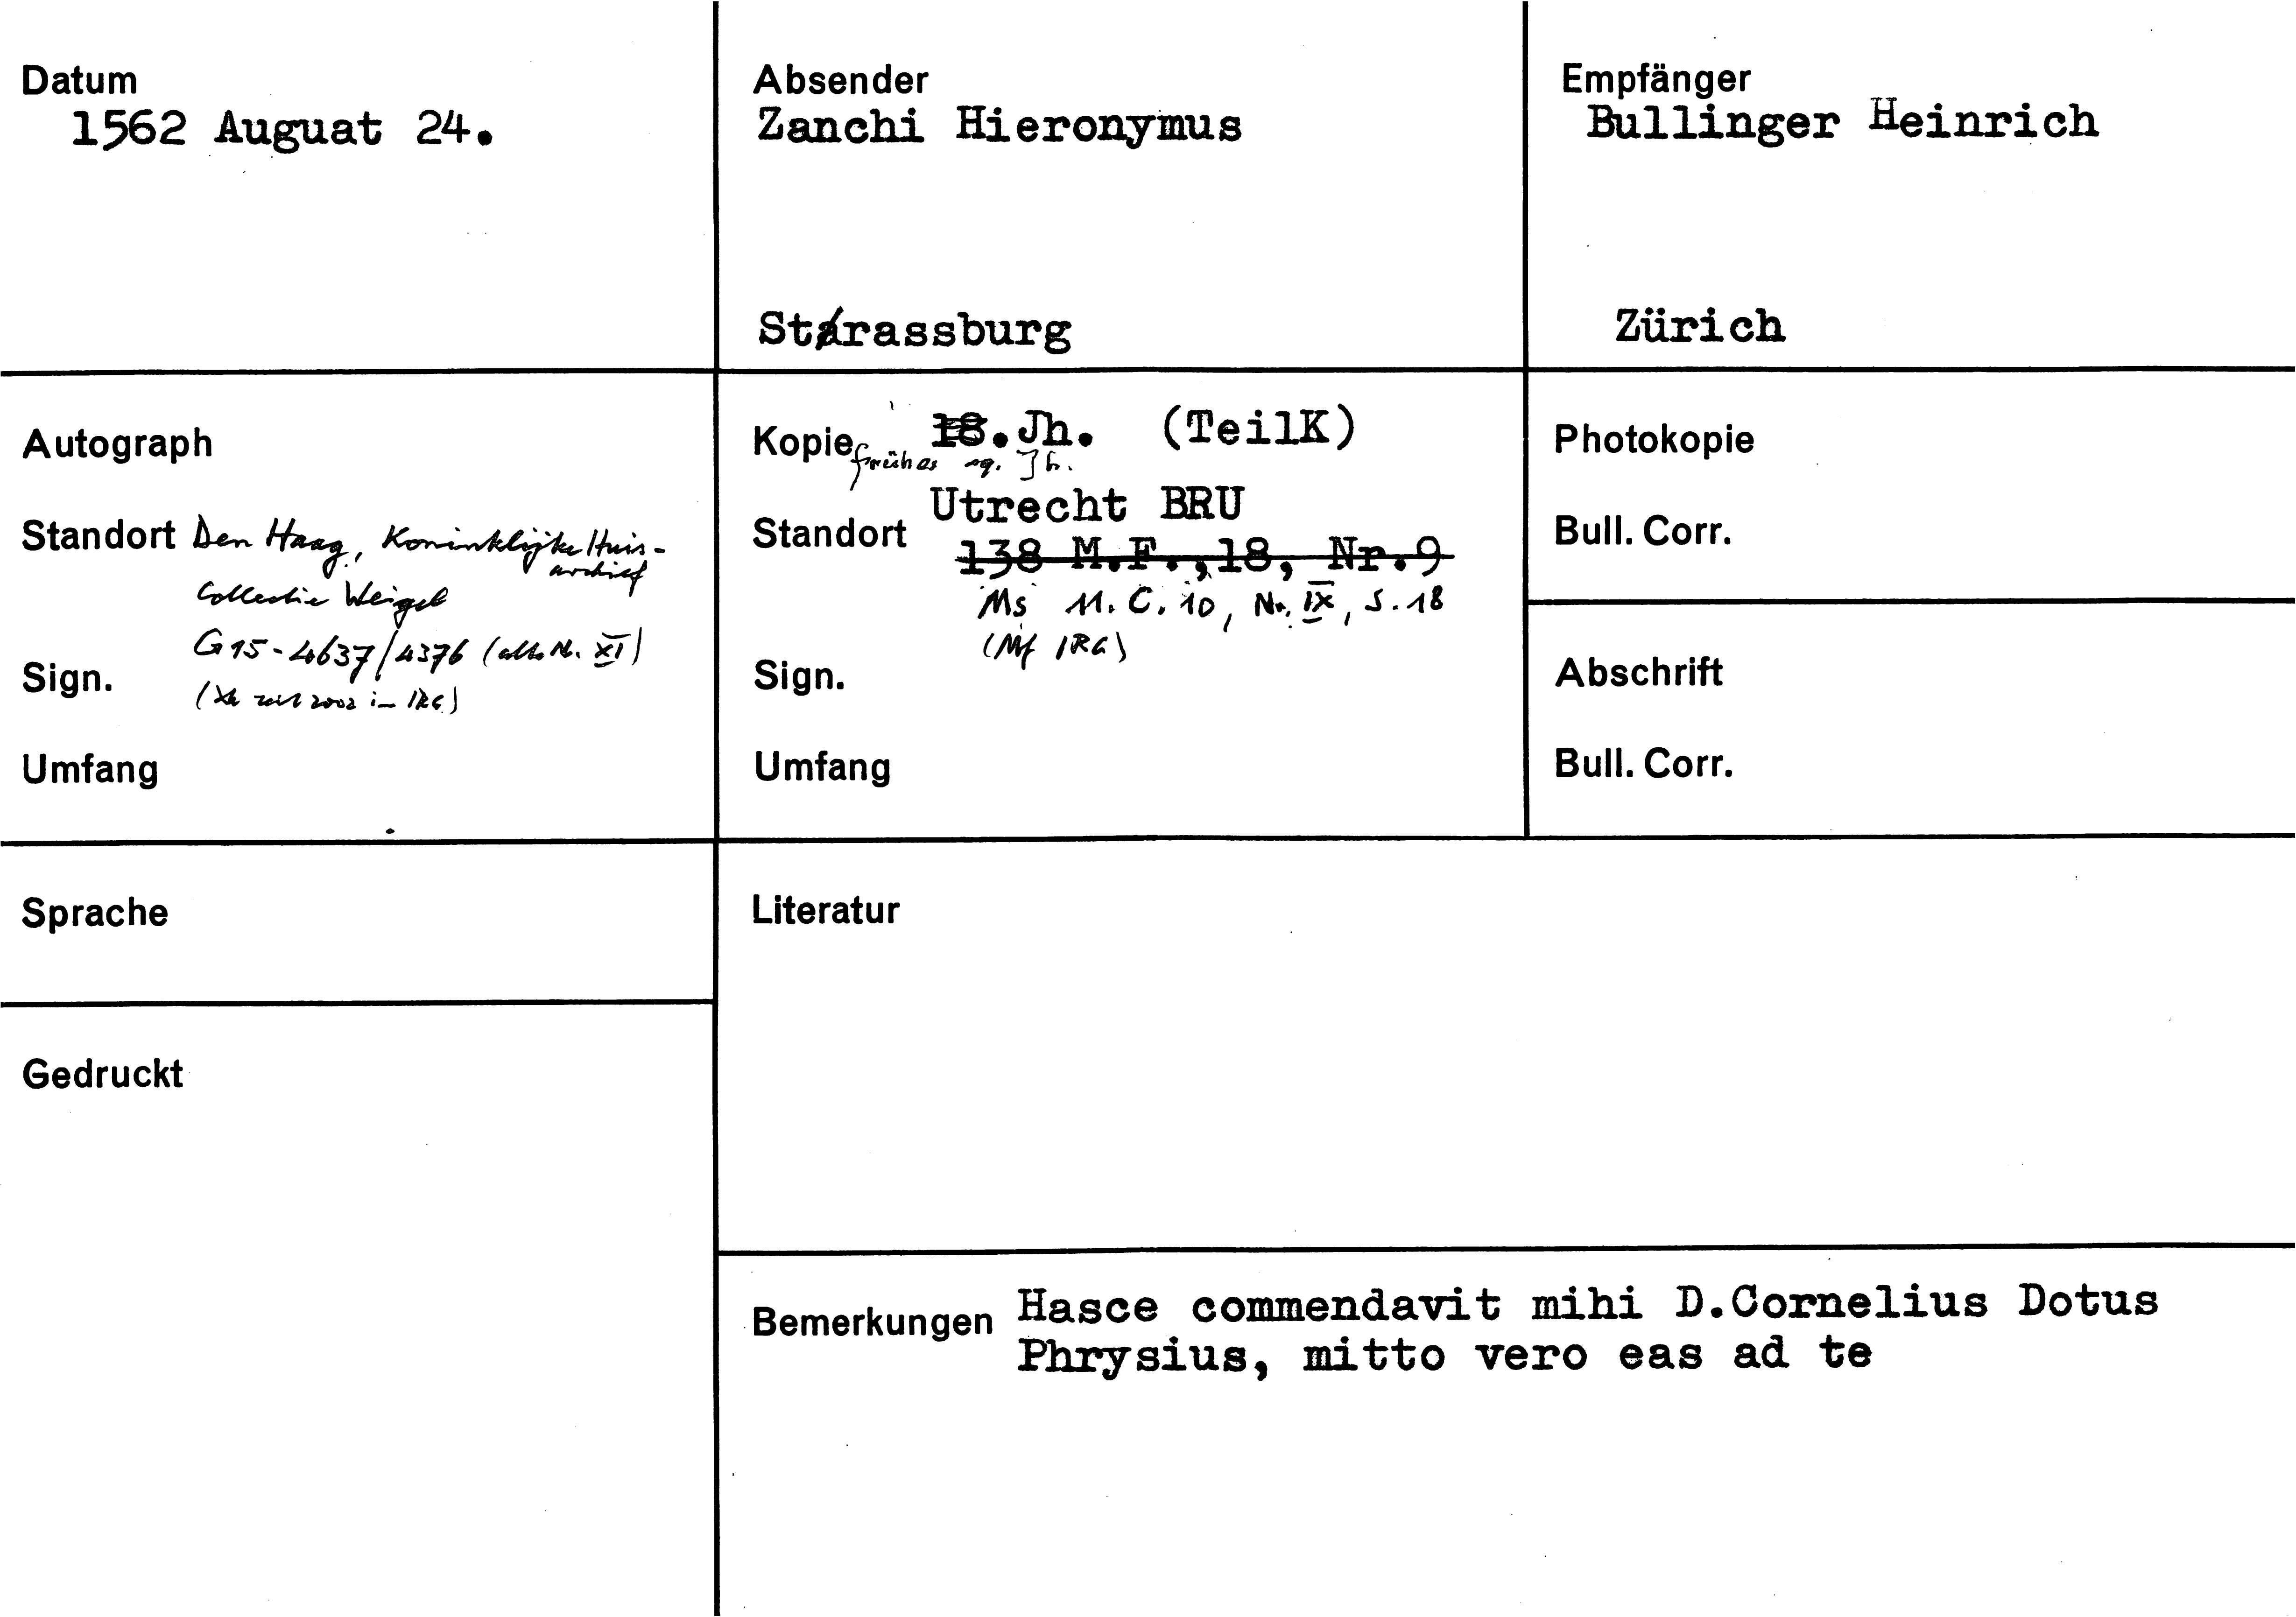 Datum
1562 Auguat 24.
Absender
Zanchi Hieronymus
Starassburg
Empfänger
Bullinger Heinrich
Zürich
Autograph
Standort Den Haag, Koninklijke Huis-
archief
Collectie Weigel
G15-4637/4376 (alte Nr. XI)
Sign.
(Xk seit 2002 im IRG)
Umfang
Kopie 18.Jh. (TeilK)
frühes 19. Jh.
Utrecht BRU
Standort
138 M.F.,18, Nr.9
Ms 11. C. 10, Nr. IX, S. 18
(Mf IRG)
Sign.
Umfang
Photokopie
Bull. Corr.
Abschrift
Bull. Corr.
Sprache
Gedruckt
Literatur
Bemerkungen Hasce commendavit mihi D.Cornelius Dotus
Phrysius, mitto vero eas ad te